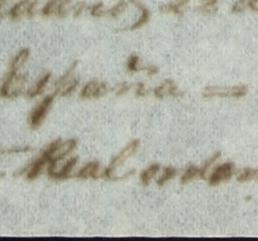 España =
Real orden